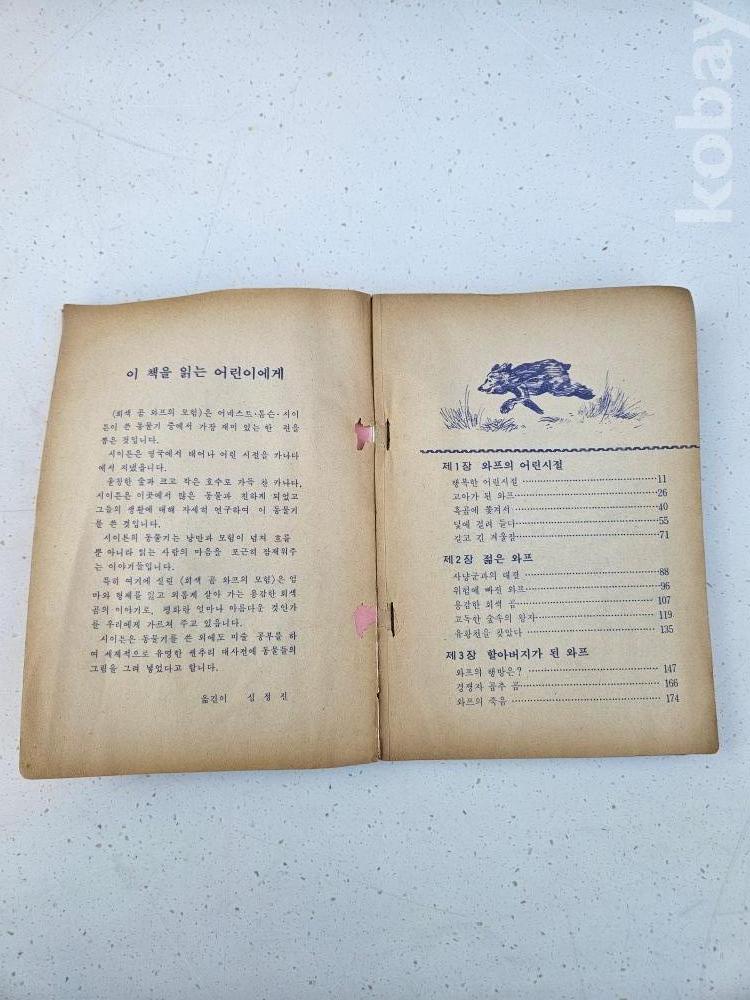 이 책을 읽는 어린이에게
〈회색 곰 와프의 모험〉은 어네스트·톰슨·시이
튼이 쓴 동물기 중에서 가장 재미 있는 한 편을
뽑은 것입니다.
시이튼은 영국에서 태어나 어린 시절을 카나다
에서 지냈읍니다.
울창한 숲과 크고 작은 호수로 가득 찬 카나다,
시이튼은 이곳에서 많은 동물과 친하게 되었고
그들의 생활에 대해 자세히 연구하여 이 동물기
를 쓴 것입니다.
시이튼의 동물기는 낭만과 모험이 넘쳐 흐를
뿐 아니라 읽는 사람의 마음을 포근히 잠재워주
는 이야기들입니다.
특히 여기에 실린 〈회색 곰 와프의 모험〉은 엄
마와 형제를 잃고 외롭게 살아 가는 용감한 회색
곰의 이야기로, 평화란 얼마나 아름다운 것인가
를 우리에게 가르쳐 주고 있읍니다.
시이튼은 동물기를 쓴 외에도 미술 공부를 하
여 세계적으로 유명한 센추리 대사전에 동물들의
그림을 그려 넣었다고 합니다.
옮긴이 심 정 진
제1장 와프의 어린시절
행복한 어린시절 11
고아가 된 와프 26
흑곰에 쫓겨서 40
덫에 걸려 들다 55
길고 긴 겨울잠 71
제2장 젊은 와프
사냥군과의 대결 88
위험에 빠진 와프 96
용감한 회색 곰 107
고독한 숲속의 왕자 119
유황천을 찾았다 135
제3장 할아버지가 된 와프
와프의 행방은? 147
경쟁자 곰추 곰 166
와프의 죽음 174
kobay